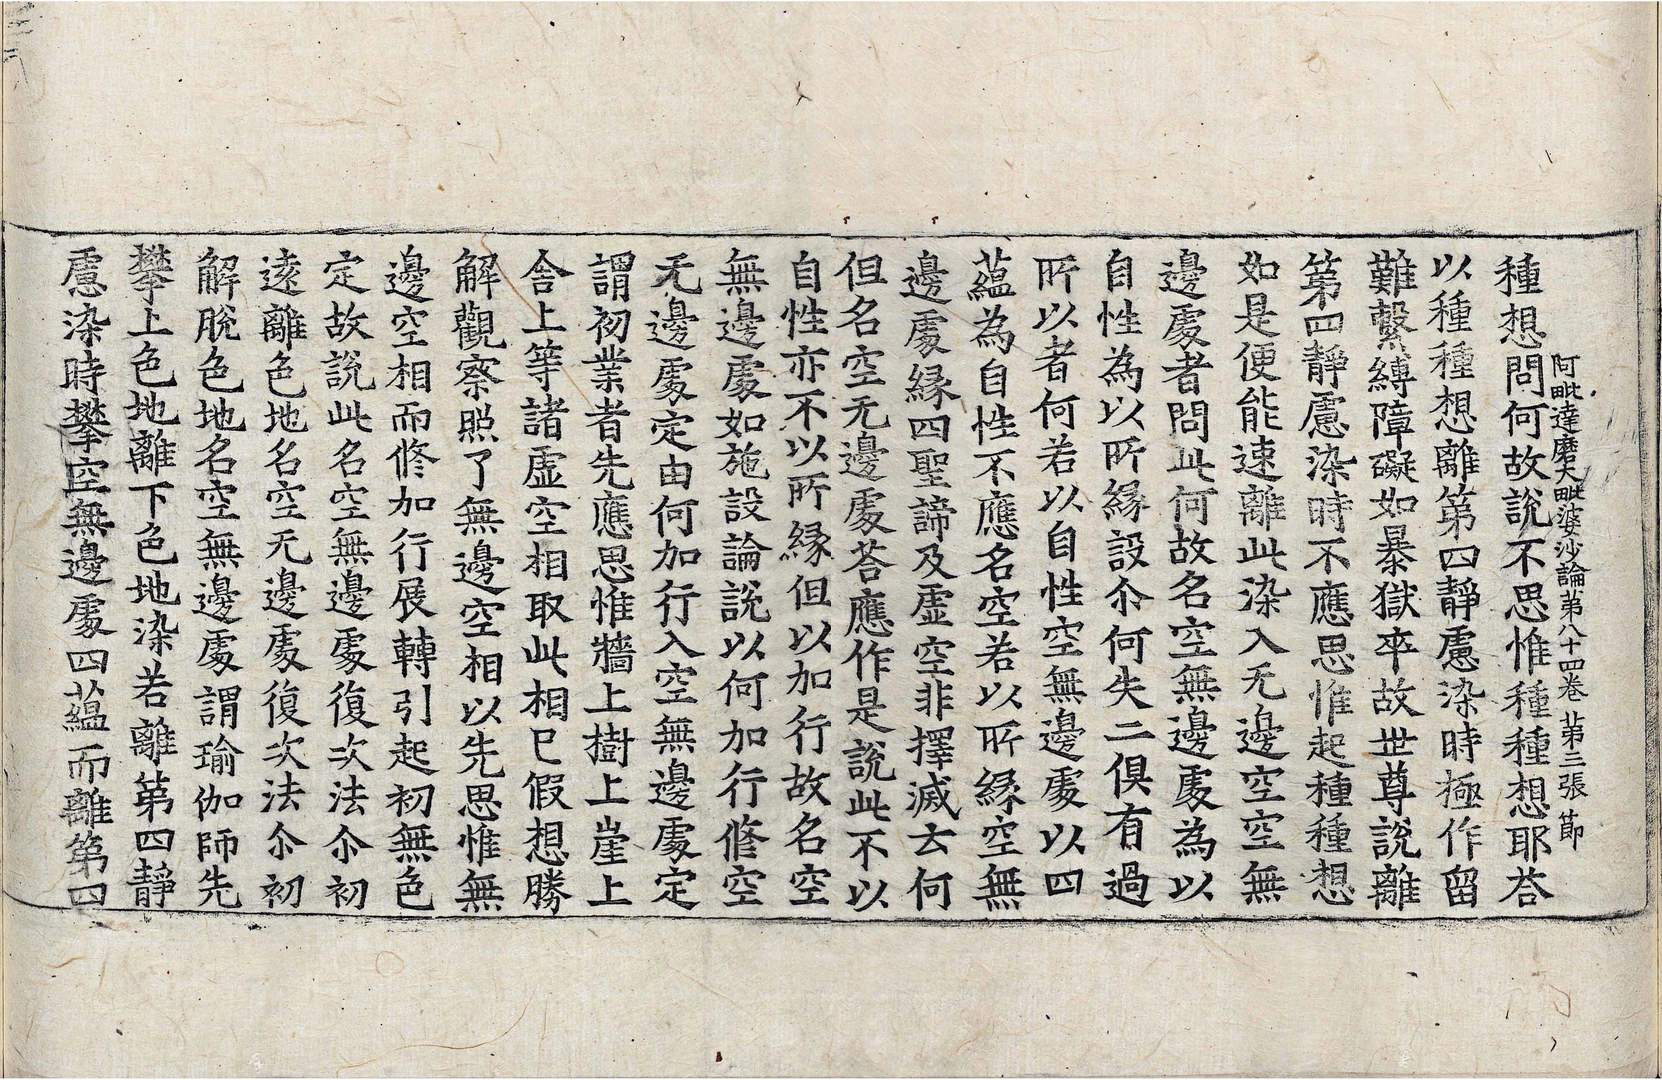 阿毗達磨大毗婆沙論第八十四卷 苐三張 節
種想問何故說不思惟種種想耶荅
以種種想離第四靜慮染時極作留
難繫縛障礙如暴獄卒故世尊說離
第四靜慮染時不應思惟起種種想
如是便能速離此染入无邊空空無
邊處者問此何故名空無邊處為以
自性為以所緣設尒何失二俱有過
所以者何若以自性空無邊處以四
蘊為自性不應名空若以所緣空無
邊處緣四聖諦及虛空非擇滅云何
但名空无邊處荅應作是說此不以
自性亦不以所緣但以加行故名空
無邊處如施設論說以何加行修空
无邊處定由何加行入空無邊處定
謂初業者先應思惟牆上樹上崖上
舍上等諸虛空相取此相已假想勝
解觀察照了無邊空相以先思惟無
邊空相而修加行展轉引起初無色
定故說此名空無邊處復次法尒初
遠離色地名空无邊處復次法尒初
解脫色地名空無邊處謂瑜伽師先
攀上色地離下色地染若離第四靜
慮染時攀空無邊處四蘊而離第四